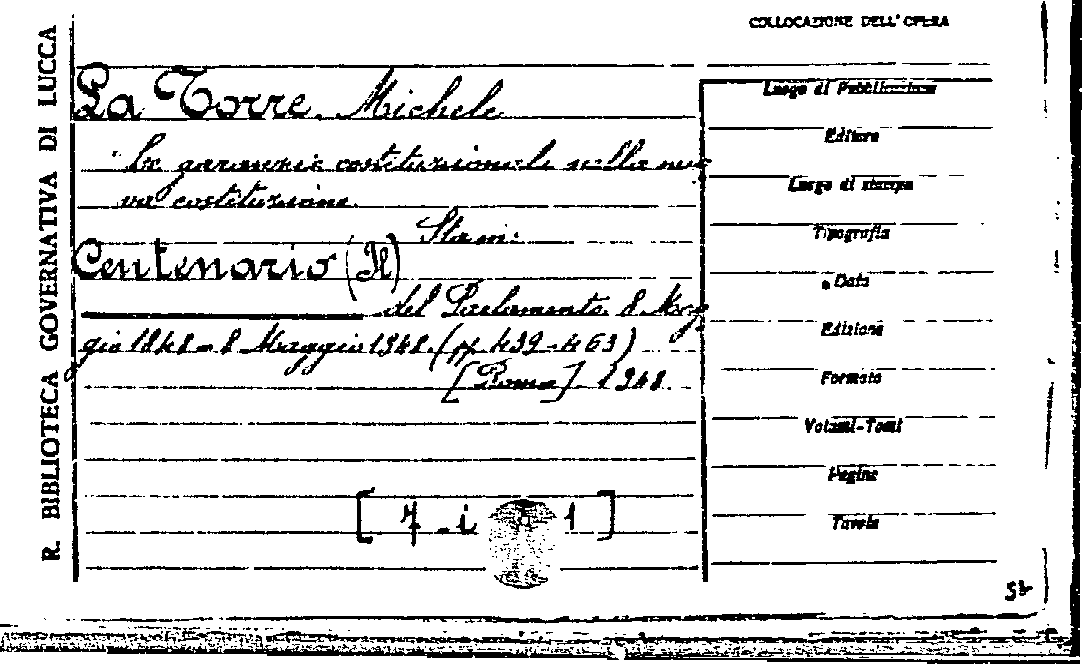 COLLOCAZIONE DELL'OPERA
R. BIBLIOTECA GOVERNATIVA DI LUCCA
La Torre Michele
Le garanzie costituzionali nella nuo
va costituzione.
Stam:
Centenario (Il)
del Parlamento. 8 Mag
gio 1848 - 8 Maggio 1948. (pp. 439-463)
[Roma] 1948.
[ 7 - i 1 ]
Luogo di Pubblicazione
Editore
Luogo di stampa
Tipografia
Data
Edizione
Formato
Volumi-Tomi
Pagine
Tavole